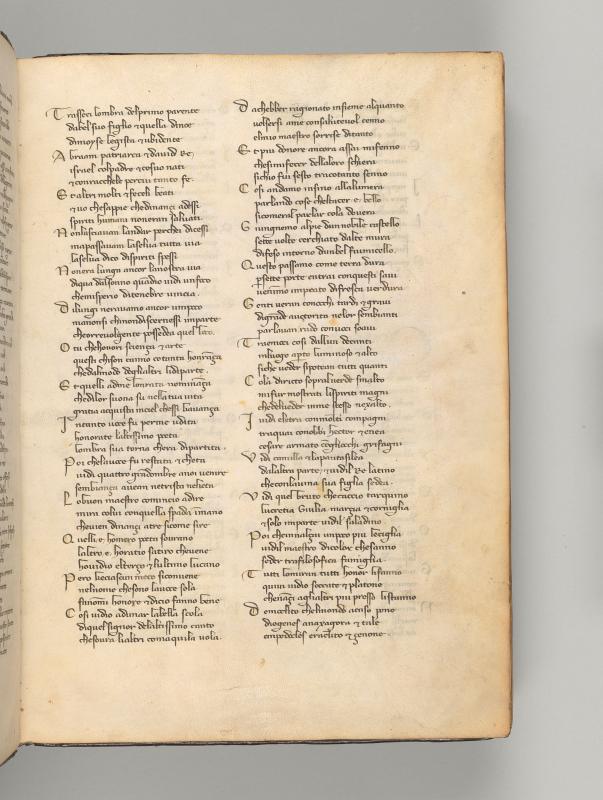 Trasseci lombra delprimo parente
dabel suo figlio et quella dinoe
dimoyse legista et ubidente
Abraam patriarca et david Re
israel colpadre et cosuo nati
et conrachele percui tanto fe
Et altri molti et feceli beati
et vo chesappie chedinançi adessi
spiriti humani noneran salvati
Nonlasciavam landar perchei dicessi
mapassavam laselva tutta via
laselva dico dispiriti spessi
Nonera lungi ancor lanostra via
diqua dalsonno quādio vidi unfoco
chemisperio ditenebre vincia
Dilungi neravamo ancor unpoco
manonsi chinondiscernessi imparte
cheorrevolgente possedea quel loco
O tu chehonori sciença et arte
questi chison channo cotanta honrança
chedalmodo deglialtri lidiparte
Et quelli adme lonrata nominança
chedilor suona su nellatua vita
gratia acquista inciel chessi liavança
Intanto voce fu perme udita
honorate laltissimo poeta
lombra sua torna chera dipartita
Poi chelavoce fu restata et cheta
vidi quattro grandombre anoi venire
sembiança avean netrista nelieta
Lobuon maestro comincio adire
mira colui conquella spada īmano
chevien dinançi atre sicome sire
Quelli e homero poeta sovrano
laltro e horatio satiro chevene
hovidio elterço et lultimo lucano
Pero heciascun meco siconvene
nelnome chesono lavoce sola
fannomi honore et dicio fanno bene
Cosi vidio adunar labella scola
diquel signor delaltissimo canto
chesovra lialtri comaquila vola
Dachebber ragionato insieme alquanto
volsersi ame consalutevol cenno
elmio maestro sorrise ditanto
Et piu donore ancora assai mifenno
chesimifecer dellaloro schiera
sichio fui sesto tracotanto senno
Cosi andamo infino allalumera
parlando cose cheltacer e bello
sicomeral parlar cola dovera
Giungnemo alpie dunnobile castello
sette volte cerchiato dalte mura
difeso intorno dunbel fiumicello
Questo passamo come terra dura
persette porte entrai conquesti savi
venimmo inprato difresca verdura
Genti veran conocchi tardi et gravi
digrade auctorita nelor sembianti
parlavan rado convoci soavi
Traenoci cosi dallun decanti
inluogo aperto luminoso et alto
siche veder sipotean tutti quanti
Cola diricto sopralverde smalto
mifuor mostrati lispiriti magni
chedelveder inme stesso nexalto
Ividi eletra conmolti compagni
traquai conobbi hector et enea
cesare armato cogliocchi grifagni
Vidi camilla et lapantasilea
dalaltra parte et vidil Re latino
checonlavina sua figlia sedea
Vidi quel bruto checaccio tarquino
lucretia Giulia martia et corniglia
et solo imparte vidil saladino
Poi cheinnalçai unpoco piu leciglia
vidil maestro dicolor chesanno
seder trafilosofica famiglia
Tutti lomiran tutti honor lifanno
quivi vidio socrate et platone
chenançi aglialtri piu presso listanno
Democrito chelmondo acaso pone
diogenes anaxagora et tale
empedocles eraclito et çenone